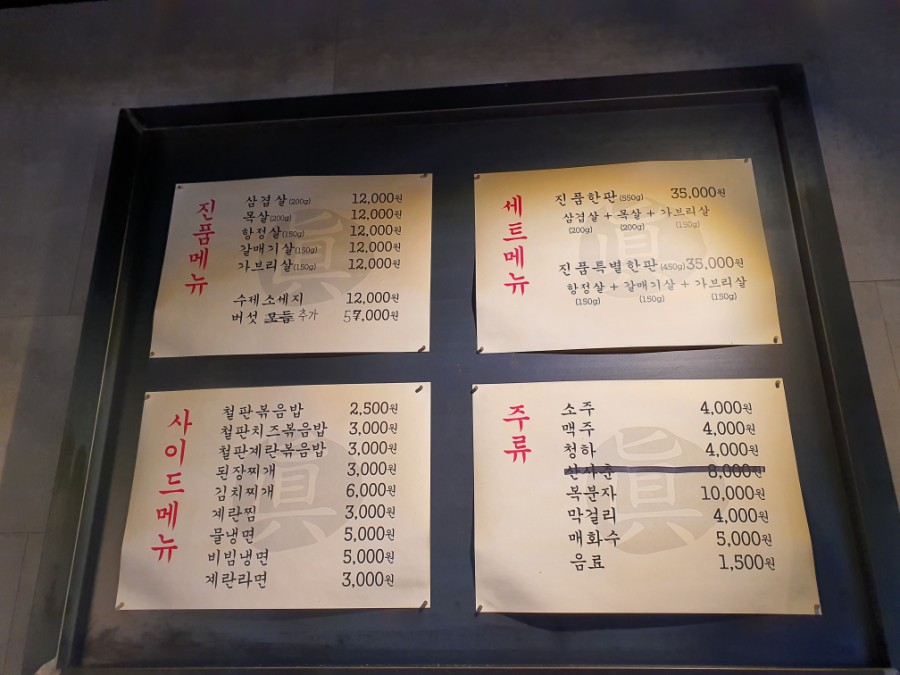 진품메뉴
삼겹살(200g) 12,000원
목살(200g) 12,000원
항정살(150g) 12,000원
갈매기살(150g) 12,000원
가브리살(150g) 12,000원
수제소세지 12,000원
버섯 모듬 추가 57,000원
세트메뉴
진품한판(550g) 35,000원
삼겹살 + 목살 + 가브리살
(200g) (200g) (150g)
진품특별한판(450g) 35,000원
항정살 + 갈매기살 + 가브리살
(150g) (150g) (150g)
사이드메뉴
철판볶음밥 2,500원
철판치즈볶음밥 3,000원
철판계란볶음밥 3,000원
된장찌개 3,000원
김치찌개 6,000원
계란찜 3,000원
물냉면 5,000원
비빔냉면 5,000원
계란라면 3,000원
주류
소주 4,000원
맥주 4,000원
청하 4,000원
산사춘 8,000원
복분자 10,000원
막걸리 4,000원
매화수 5,000원
음료 1,500원
眞
眞
眞
眞